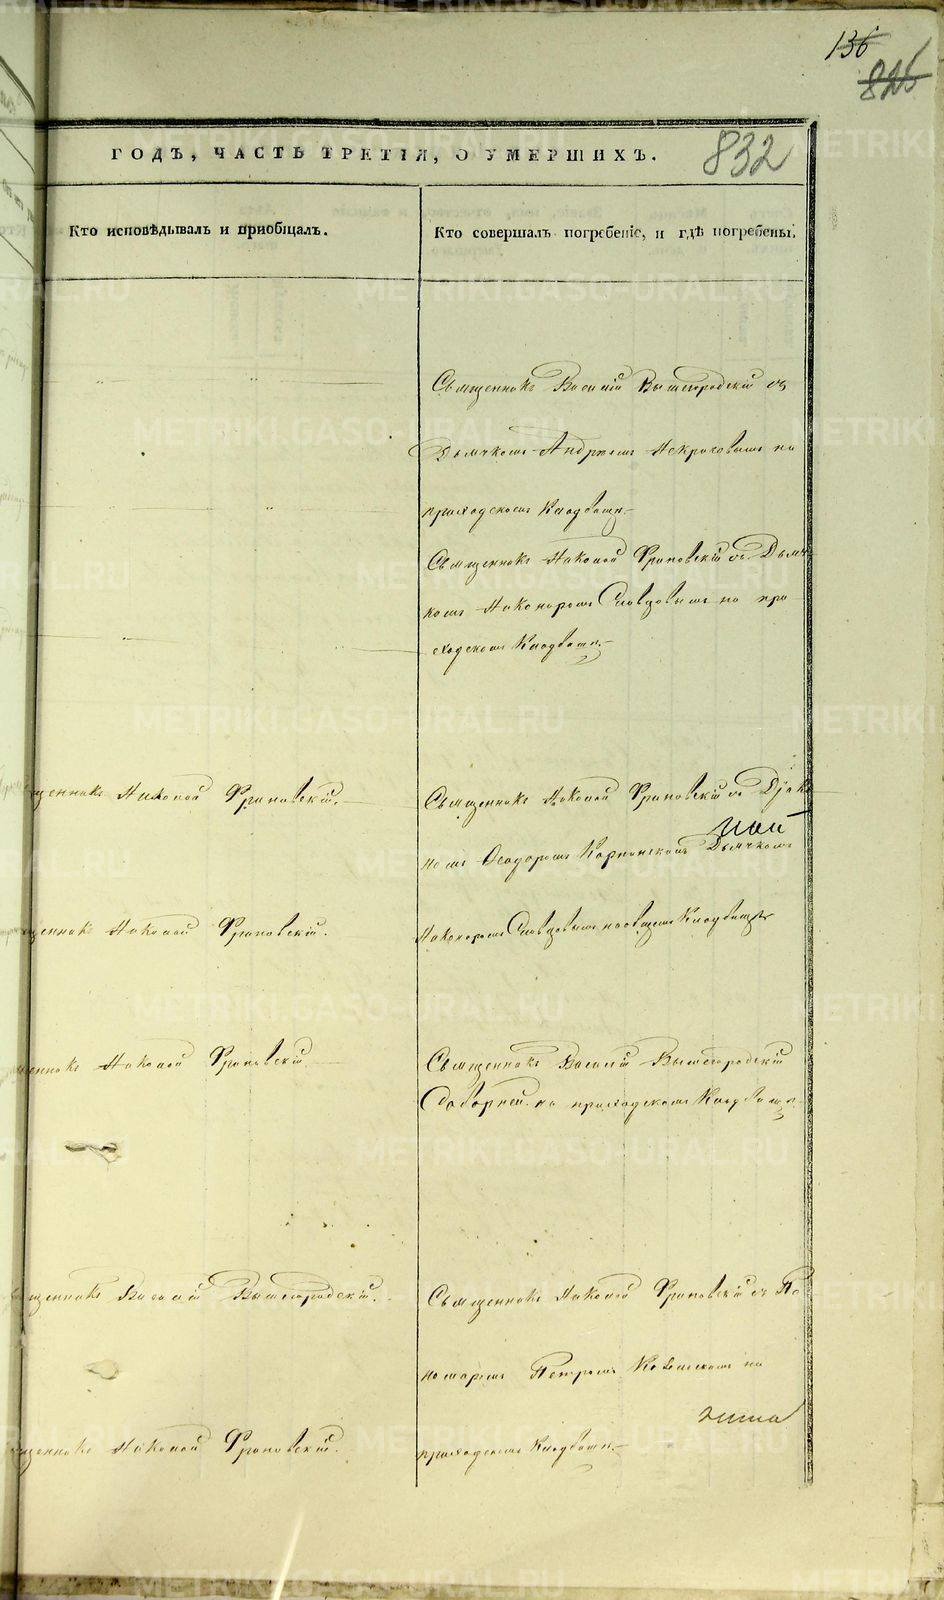 136
826
832
ГОДЪ, ЧАСТЬ ТРЕТІЯ, О УМЕРШИХЪ.
Кто исповѣдывалъ и пріобщалъ.
Кто совершалъ погребеніе, и гдѣ погребены.
Священникъ Василій Вышегородскій съ
Дьячкомъ Андреемъ Некрасовымъ на
приходскомъ Кладбищѣ.
Священникъ Николай Фроловскій съ Дьяч
комъ Никаноромъ Словцовымъ на при
ходскомъ Кладбищѣ.
щенникъ Николай Фроловскій.
Священникъ Николай Фроловскій съ Діако
номъ Феодоромъ Карпинскимъ Дьячкомъ
щенникъ Николай Фроловскій.
Никаноромъ Словцовымъ на общемъ Кладбищѣ
щенникъ Николай Фроловскій
Священникъ Василій Вышегородскій
Соборнѣ на приходскомъ Кладбищѣ.
щенникъ Василій Вышегородскій.
Священникъ Николай Фроловскій съ По
номаремъ Петромъ на
щенникъ Николай Фроловскій.
приходскомъ Кладбищѣ.
METRIKI.GASO-URAL.RU